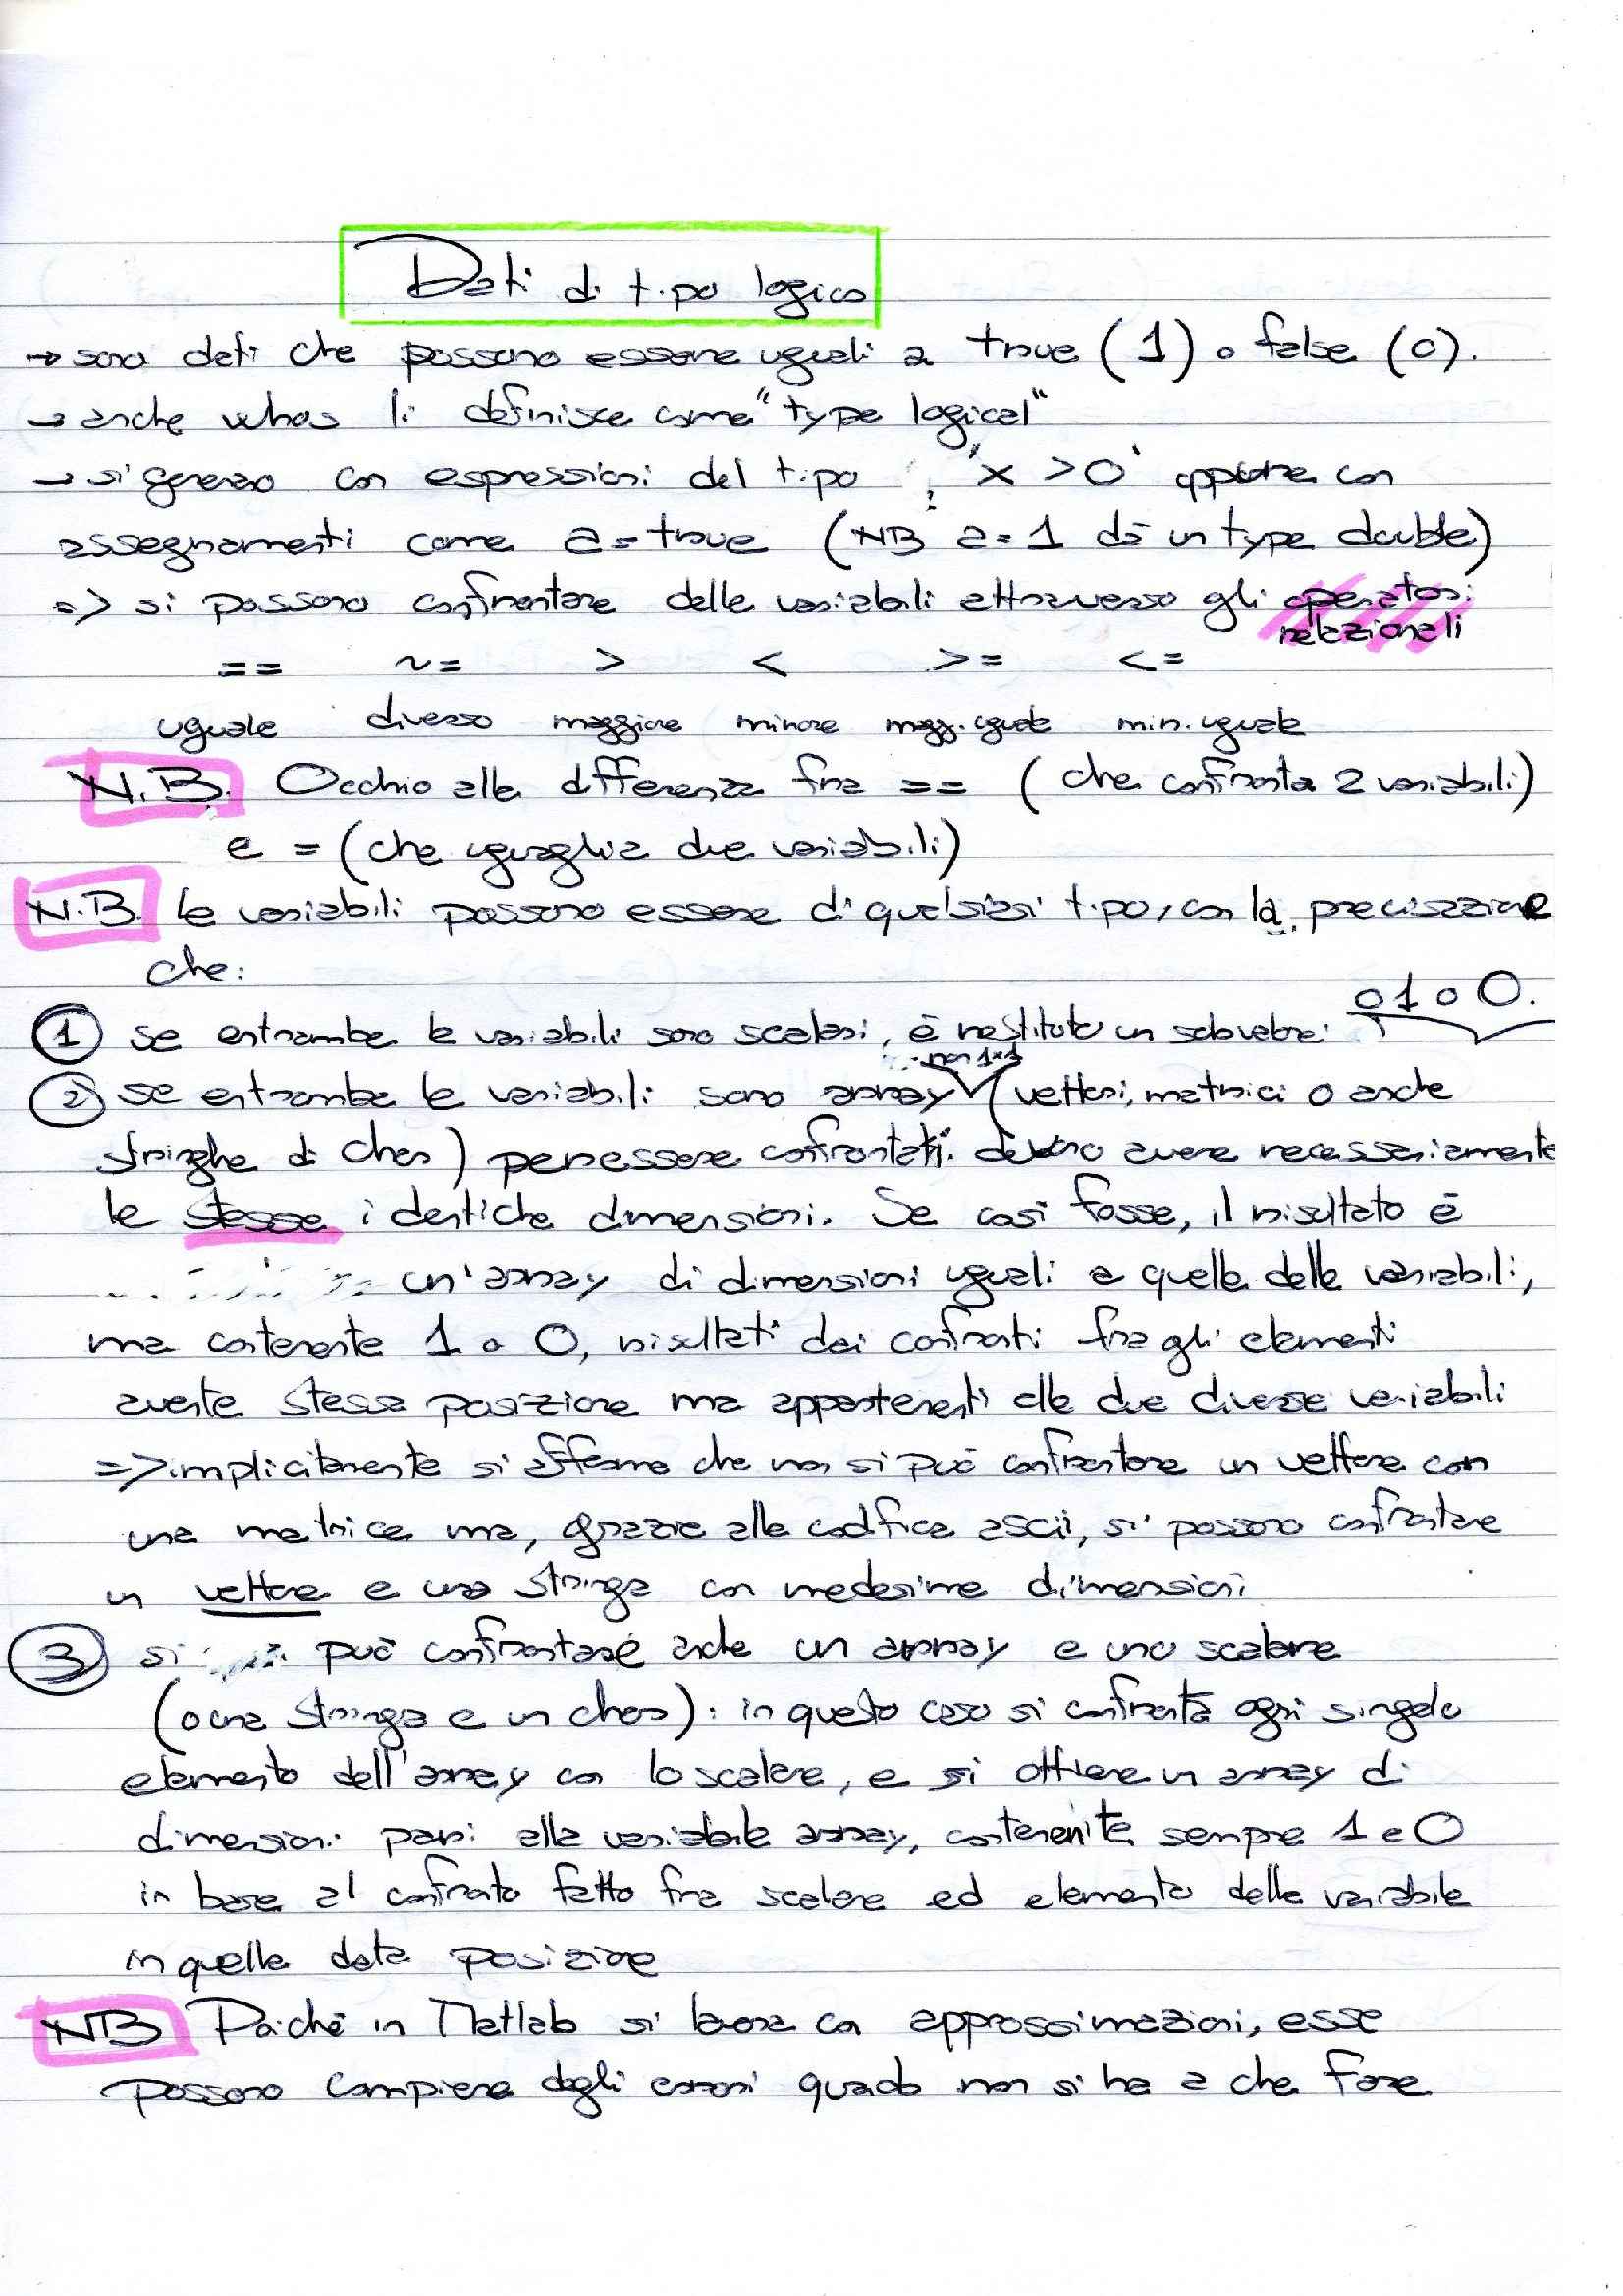 Dati di tipo logico
→ sono dati che possono essere uguali a true (1) o false (0).
→ anche whos li definisce come "type logical"
→ si generano con espressioni del tipo : 'x > 0' oppure con
assegnamenti come a = true (NB a = 1 dà un type double)
=> si possono confrontare delle variabili attraverso gli operatori
relazionali
== ~= > < >= <=
uguale diverso maggiore minore magg. uguale min. uguale
N.B. Occhio alla differenza fra == (che confronta 2 variabili)
e = (che uguaglia due variabili)
N.B. le variabili possono essere di qualsiasi tipo, con la precisazione
che:
o 1 o 0.
1 se entrambe le variabili sono scalari, è restituito un solo valore:
non 1x1
2 se entrambe le variabili sono array (vettori, matrici o anche
stringhe di char) per essere confrontati devono avere necessariamente
le stesse identiche dimensioni. Se così fosse, il risultato è
un'array di dimensioni uguali a quelle delle variabili,
ma contenente 1 o 0, risultati dai confronti fra gli elementi
avente stessa posizione ma appartenenti alle due diverse variabili
=> implicitamente si afferma che non si può confrontare un vettore con
una matrice ma, grazie alla codifica ascii, si possono confrontare
un vettore e una stringa con medesime dimensioni
3 si può confrontare anche un array e uno scalare
(o una stringa e un char): in questo caso si confronta ogni singolo
elemento dell'array con lo scalare, e si ottiene un array di
dimensioni pari alla variabile array, contenente sempre 1 e 0
in base al confronto fatto fra scalare ed elemento della variabile
in quella data posizione
NB Poiché in Matlab si lavora con approssimazioni, esse
possono compiere degli errori quando non si ha a che fare